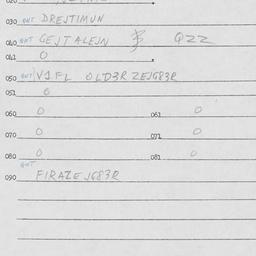 030 ANT DREJTIMUN
040 ANT GEJTALEJN QZZ
041 0
050 ANT V1FL OLD3R ZEJG83R
051 0
060 0 061 0
070 0 071 0
080 0 081 0
ANT
090 FIRAZEJG83R